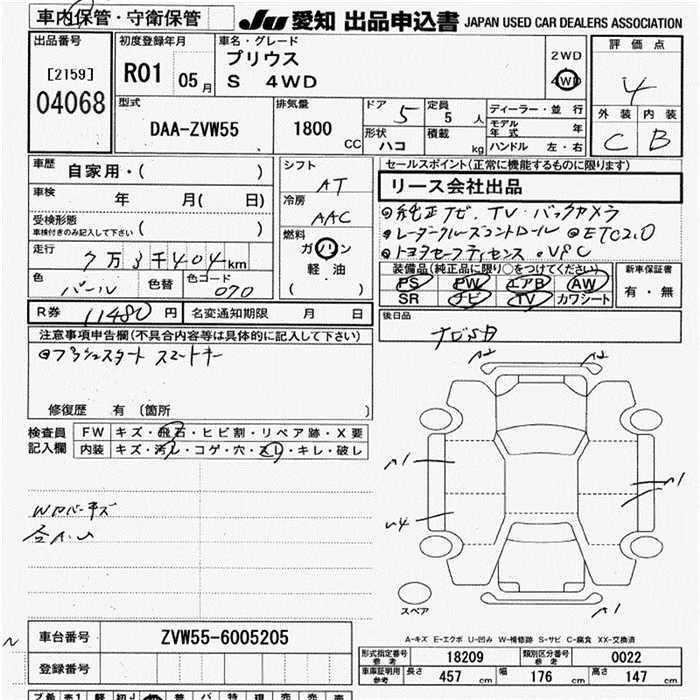 車内保管・守衛保管
JU 愛知 出品申込書 JAPAN USED CAR DEALERS ASSOCIATION
出品番号
[2159]
04068
初度登録年月
R01 05月
車名・グレード
プリウス
S 4WD
2WD
4WD
評価点
4
外装 内装
C B
型式
DAA-ZVW55
排気量
1800
CC
ドア 5
定員 5 人
形状 ハコ
積載 kg
ディーラー・並行
モデル年式 年
ハンドル 左・右
車歴 自家用・( )
車検 年 月( 日)
受検形態
車検付きのみ記入して下さい ( )
走行 7万3千404km
色 パール
色替
色コード 070
シフト
AT
冷房
AAC
燃料
ガソリン
軽油
( )
セールスポイント(正常に機能するものに限ります)
リース会社出品
純正ナビ、TV・バックカメラ
レーダークルーズコントロール ETC2.0
トヨタセーフティセンス
装備品(純正品に限り○をつけてください)
PS PW エアB AW
SR ナビ TV カワシート
新車保証書
有・無
R券 11480円
名変通知期限 月 日
後日品
ナビSD
注意事項申告欄(不具合内容等は具体的に記入して下さい)
プッシュスタート スマートキー
修復歴 有(箇所 )
検査員
記入欄
FW キズ・飛石・ヒビ割・リペア跡・X要
内装 キズ・汚れ・コゲ・穴・スレ・キレ・破レ
A2 A2
A1
A1
U4
A1
スペア
A-キズ E-エクボ U-凹み W-補修跡 S-サビ C-腐食 XX-交換済
車台番号 ZVW55-6005205
登録番号
形式指定番号 参考 18209
類別区分番号 参考 0022
車庫証明用 参考 長さ 457 cm 幅 176 cm 高さ 147 cm